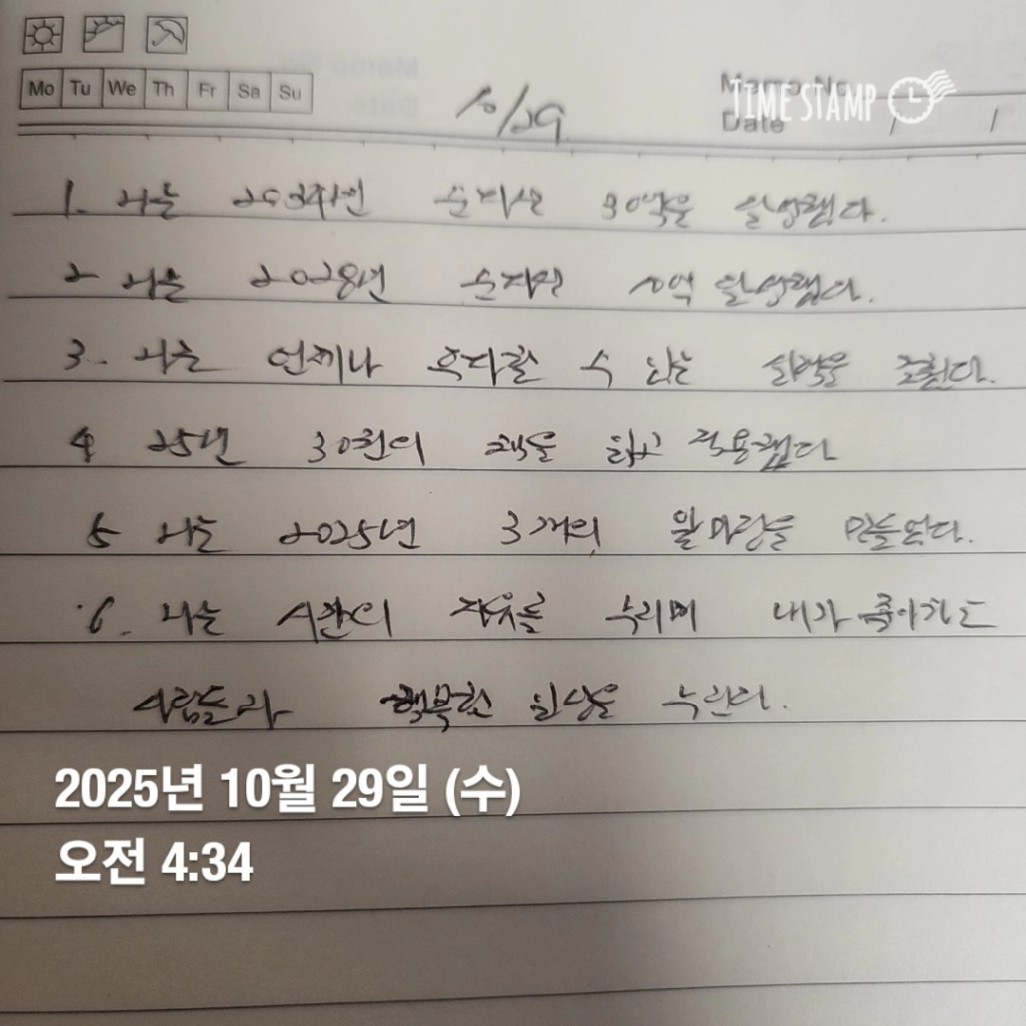 Mo Tu We Th Fr Sa Su
10/29.
Memo No.
TIME STAMP
Date / /
1. 나는 순자산 30억을 달성했다.
2 나는 2028년 순자산 10억 달성했다.
3. 나는 언제나 수 있는 체력을 다.
4 25년 30권의 책을 읽고 적용했다
5 나는 2025년 3개의 월파랑을 만들었다.
6. 나는 시간의 자유를 누리며 내가 좋아하는
사람들과 행복한 일상을 누린다.
2025년 10월 29일 (수)
오전 4:34